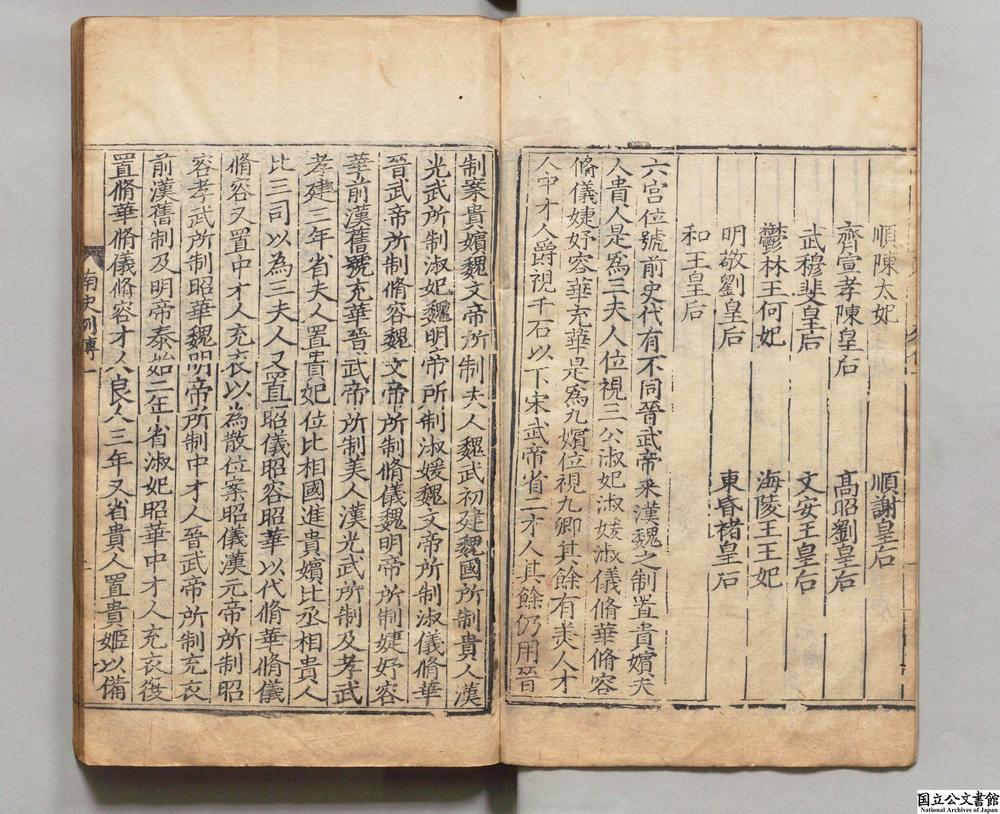 順陳太妃 順謝皇后
齊宣孝陳皇后 高昭劉皇后
武穆斐皇后 文安王皇后
鬱林王何妃 海陵王王妃
明敬劉皇后 東昏褚皇后
和王皇后
六宫位號前史代有不同晉武帝采漢魏之制置貴嬪夫
人貴人是爲三夫人位視三公淑妃淑媛淑儀脩華脩容
脩儀婕妤容華充華是爲九嬪位視九卿其餘有美人才
人中才人爵視千石以下宋武帝省二才人其餘仍用晉
制案貴嬪魏文帝所制夫人魏武初建魏國所制貴人漢
光武所制淑妃魏明帝所制淑媛魏文帝所制淑儀脩華
晉武帝所制脩容魏文帝所制脩儀魏明帝所制婕妤容
華前漢舊號充華晉武帝所制美人漢光武所制及孝武
孝建三年省夫人置貴妃位比相國進貴嬪比丞相貴人
比三司以為三夫人又置昭儀昭容昭華以代脩華脩儀
脩容又置中才人充衣以為散位案昭儀漢元帝所制昭
容孝武所制昭華魏明帝所制中才人晉武帝所制充衣
前漢舊制及明帝泰始二年省淑妃昭華中才人充衣復
置脩華脩儀脩容才人良人三年又省貴人置貴姬以備
南史列傳一
国立公文書館
National Archives of Japan